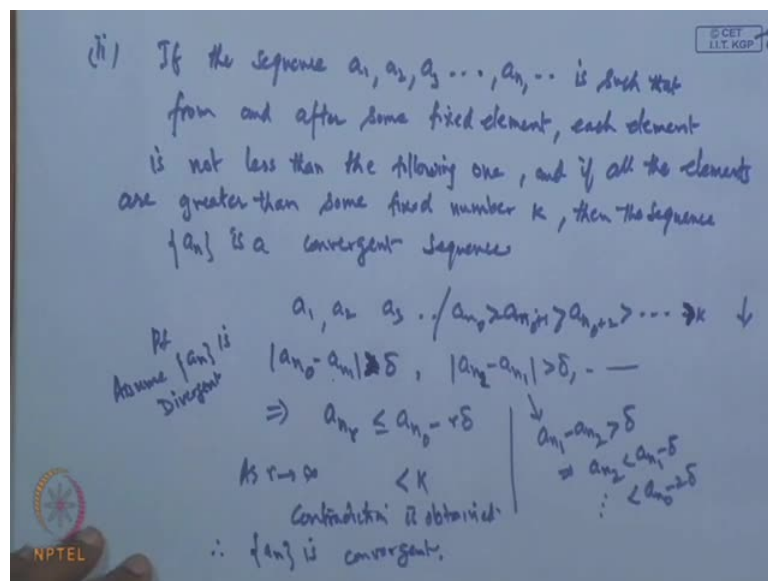 © CET
I.I.T. KGP
(ii) If the sequence a₁, a₂, a₃ ..., aₙ, .. is such that
from and after some fixed element, each element
is not less than the following one, and if all the elements
are greater than some fixed number K, then the sequence
{aₙ} is a convergent sequence
a₁, a₂ a₃ .. / a_{n₀} > a_{n₀+1} > a_{n₀+2} > ... > K ↓
Pf
Assume {aₙ} is
Divergent
|a_{n₀} - a_{n₁}| > δ, |a_{n₂} - a_{n₁}| > δ, . —
⇒ a_{nᵣ} ≤ a_{n₀} - rδ
As r → ∞ < K
Contradiction is obtained.
∴ {aₙ} is convergent.
↓
a_{n₁} - a_{n₂} > δ
⇒ a_{n₂} < a_{n₁} - δ
⋮ < a_{n₀} - 2δ
NPTEL